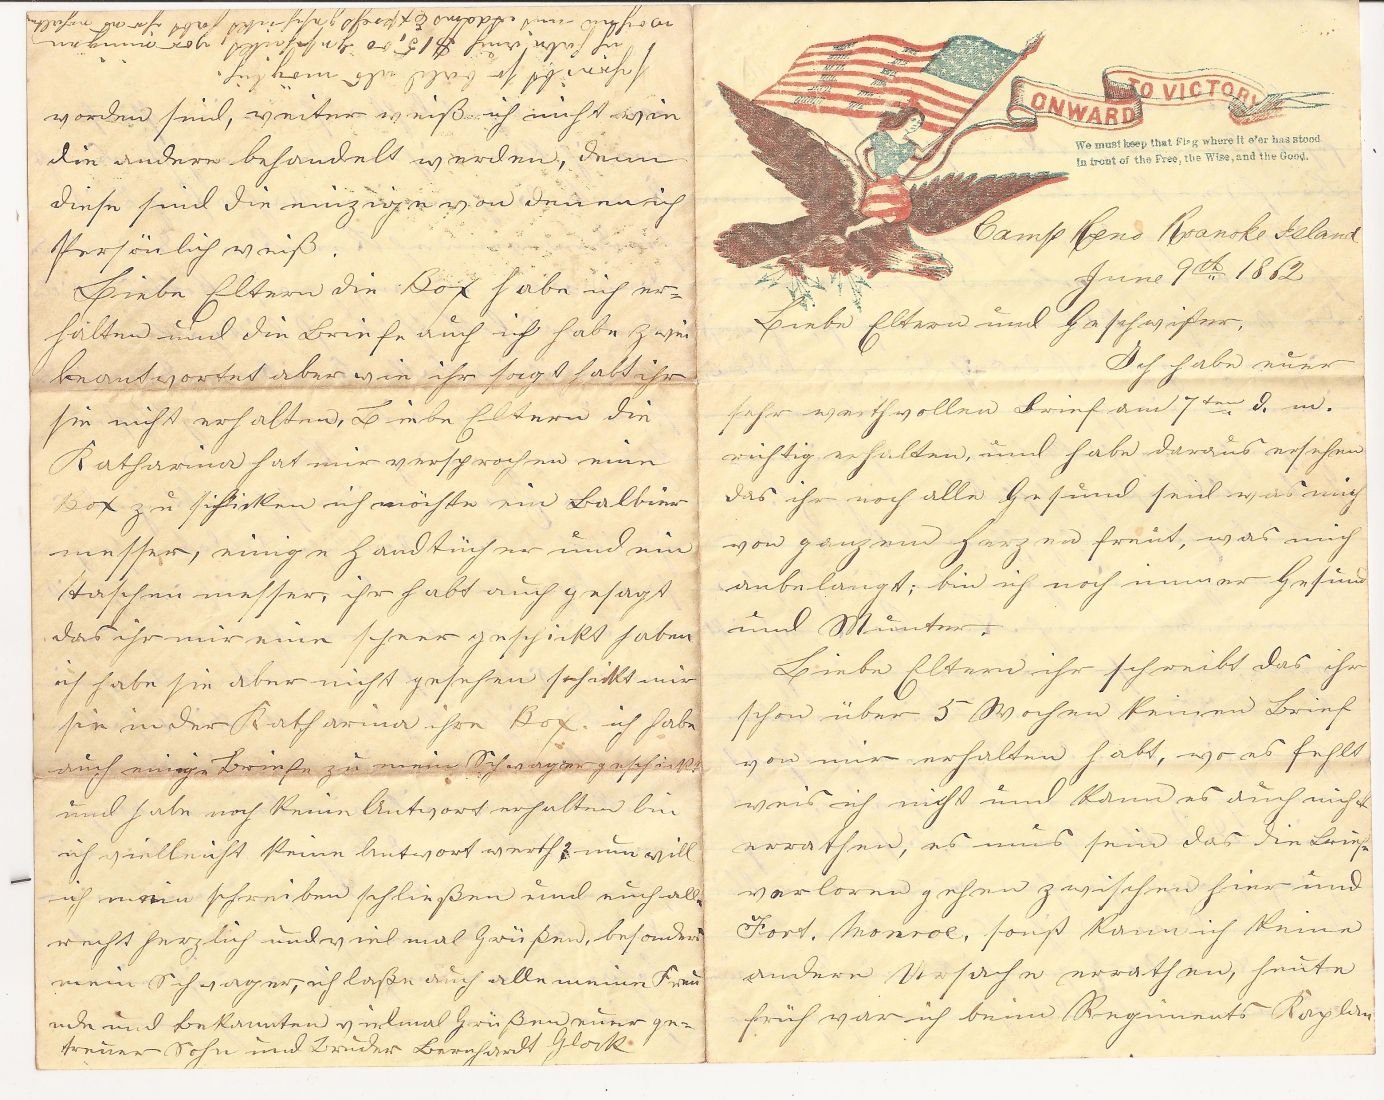 ONWARD TO VICTORY
We must keep that Flag where it e'er has stood
In front of the Free, the Wise, and the Good.
Camp Reno Roanoke Island
June 9th 1862
Liebe Eltern und Geschwister,
Ich habe euer
sehr werthvollen Brief am 7ten d. m.
richtig erhalten, und habe daraus ersehen
das ihr noch alle Gesund seid was mich
von ganzem Herzen freut, was mich
anbelangt; bin ich noch immer Gesund
und Munter.
Liebe Eltern ihr schreibt das ihr
schon über 5 Wochen keinen Brief
von mir erhalten habt, wo es fehlt
weis ich nicht und kann es auch nicht
errathen, es mus sein das die Brief-
verloren gehen zwischen hier und
Fort. Monroe, sonst kann ich keine
andere Ursache errathen, heute
früh war ich beim Regiments Kaplan
worden sind, weiter weiß ich nicht wie
die andere behandelt werden, denn
diese sind die einzige von denen ich
Persönlich weiß.
Liebe Eltern die Box habe ich er=
halten und die Briefe auch ich habe zwei
beantwortet aber wie ihr sagt habt ihr
sie nicht erhalten, Liebe Eltern die
Katharina hat mir versprochen eine
Box zu schicken ich möchte ein Balbier
messer, einige Handtücher und ein
taschen messer, ihr habt auch gesagt
das ihr mir eine scheer geschickt haben
ich habe sie aber nicht gesehen schickt mir
sie in der Katharina ihre Box. ich habe
auch einige Briefe zu mein Schwager geschickt
und habe noch keine Antwort erhalten bin
ich vielleicht keine Antwort werth? nun will
ich mein schreiben schließen und euch all-
recht herzlich und viel mal Grüßen, besonders
mein Schwager, ich laße auch alle meine Freu
nde und Bekannten vielmal Grüßen euer ge=
treuer Sohn und Bruder Bernhardt Glock
schreibt so bald als möglich
$15,00 geschickt, vor einigen
Wochen mit Adams Express geschickt habt ihr es erhalten